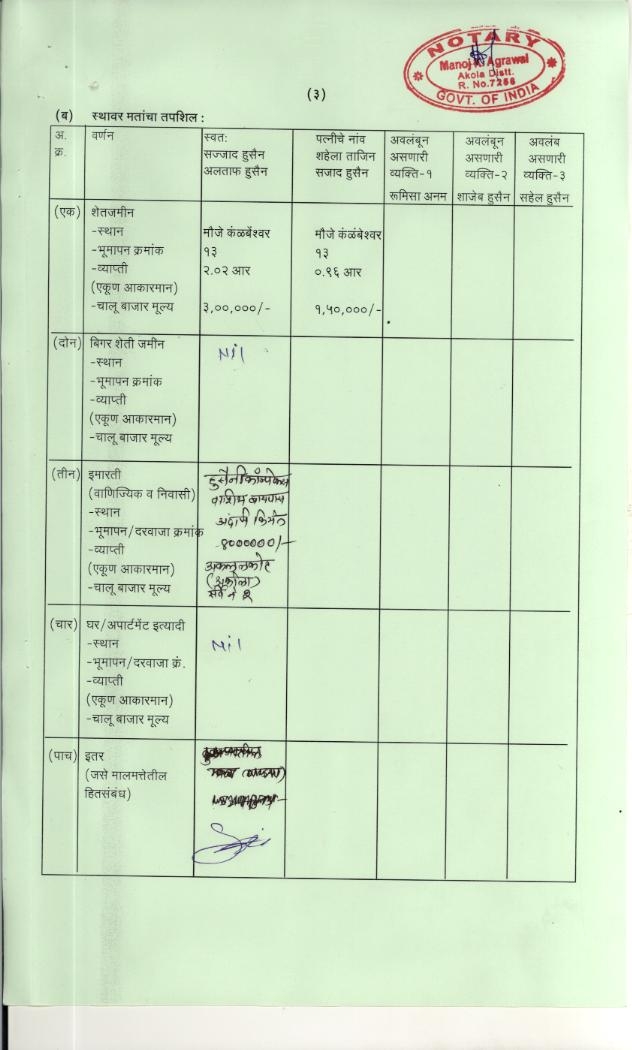 NOTARY
Manoj K. Agrawal
Akola Distt.
R. No.7256
GOVT. OF INDIA
(३)
(ब) स्थावर मतांचा तपशिल :
अ. क्र.
वर्णन
स्वत:
सज्जाद हुसैन
अलताफ हुसैन
पत्नीचे नांव
शहेला ताजिन
सजाद हुसैन
अवलंबून
असणारी
व्यक्ति-१
रूमिसा अनम
अवलंबून
असणारी
व्यक्ति-२
शाजेब हुसैन
अवलंब
असणारी
व्यक्ति-३
सहेल हुसैन
(एक) शेतजमीन
-स्थान मौजे कंळबेंश्वर मौजे कंळंबेश्वर
-भूमापन क्रमांक १३ १३
-व्याप्ती २.०२ आर ०.९६ आर
(एकूण आकारमान)
-चालू बाजार मूल्य ३,००,०००/- १,५०,०००/-
(दोन) बिगर शेती जमीन Nil
-स्थान
-भूमापन क्रमांक
-व्याप्ती
(एकूण आकारमान)
-चालू बाजार मूल्य
(तीन) इमारती
(वाणिज्यिक व निवासी)
-स्थान
-भूमापन/दरवाजा क्रमांक
-व्याप्ती
(एकूण आकारमान)
-चालू बाजार मूल्य
हुसैनी
वाशिम
अंदाजे किंमत
४००००००/-
(अकोला)
सर्वे नं
(चार) घर/अपार्टमेंट इत्यादी
-स्थान Nil
-भूमापन/दरवाजा क्रं.
-व्याप्ती
(एकूण आकारमान)
-चालू बाजार मूल्य
(पाच) इतर
(जसे मालमत्तेतील
हितसंबंध)